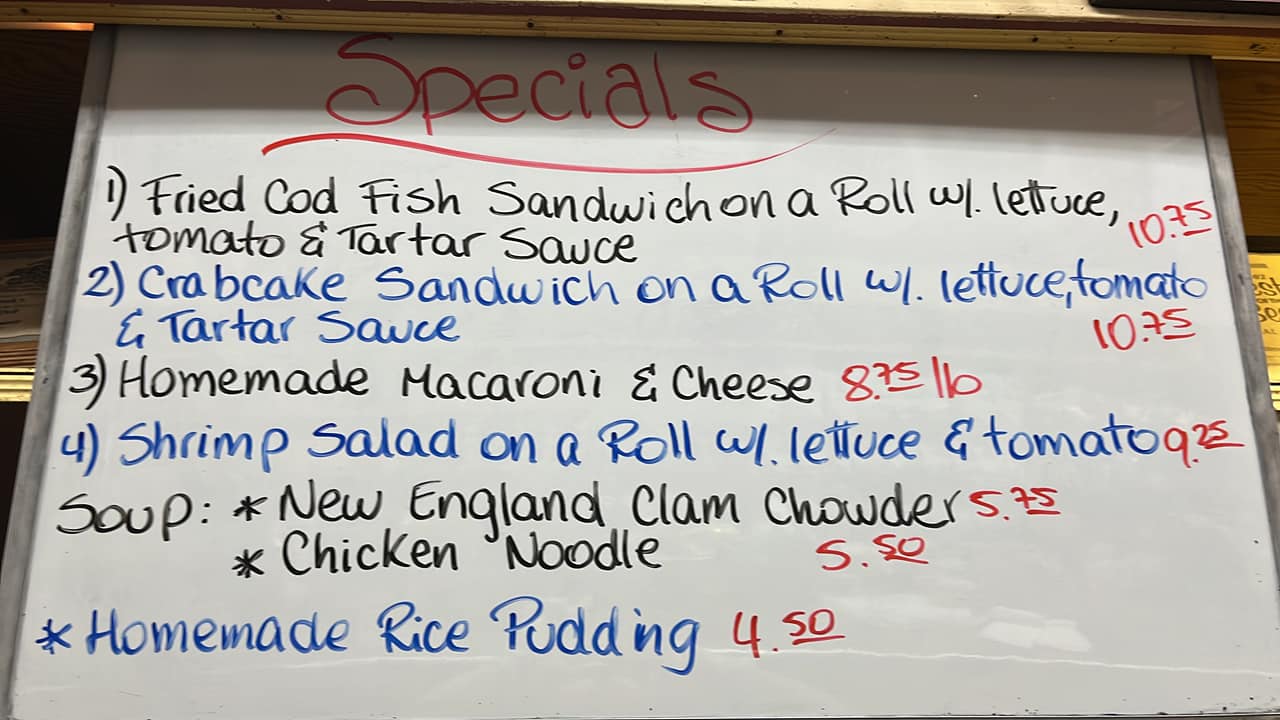 Specials
1) Fried Cod Fish Sandwich on a Roll w/. lettuce, 10.75
tomato & Tartar Sauce
2) Crabcake Sandwich on a Roll w/. lettuce, tomato
& Tartar Sauce 10.75
3) Homemade Macaroni & Cheese 8.75 lb
4) Shrimp Salad on a Roll w/. lettuce & tomato 9.25
Soup: * New England Clam Chowder 5.75
* Chicken Noodle 5.50
* Homemade Rice Pudding 4.50